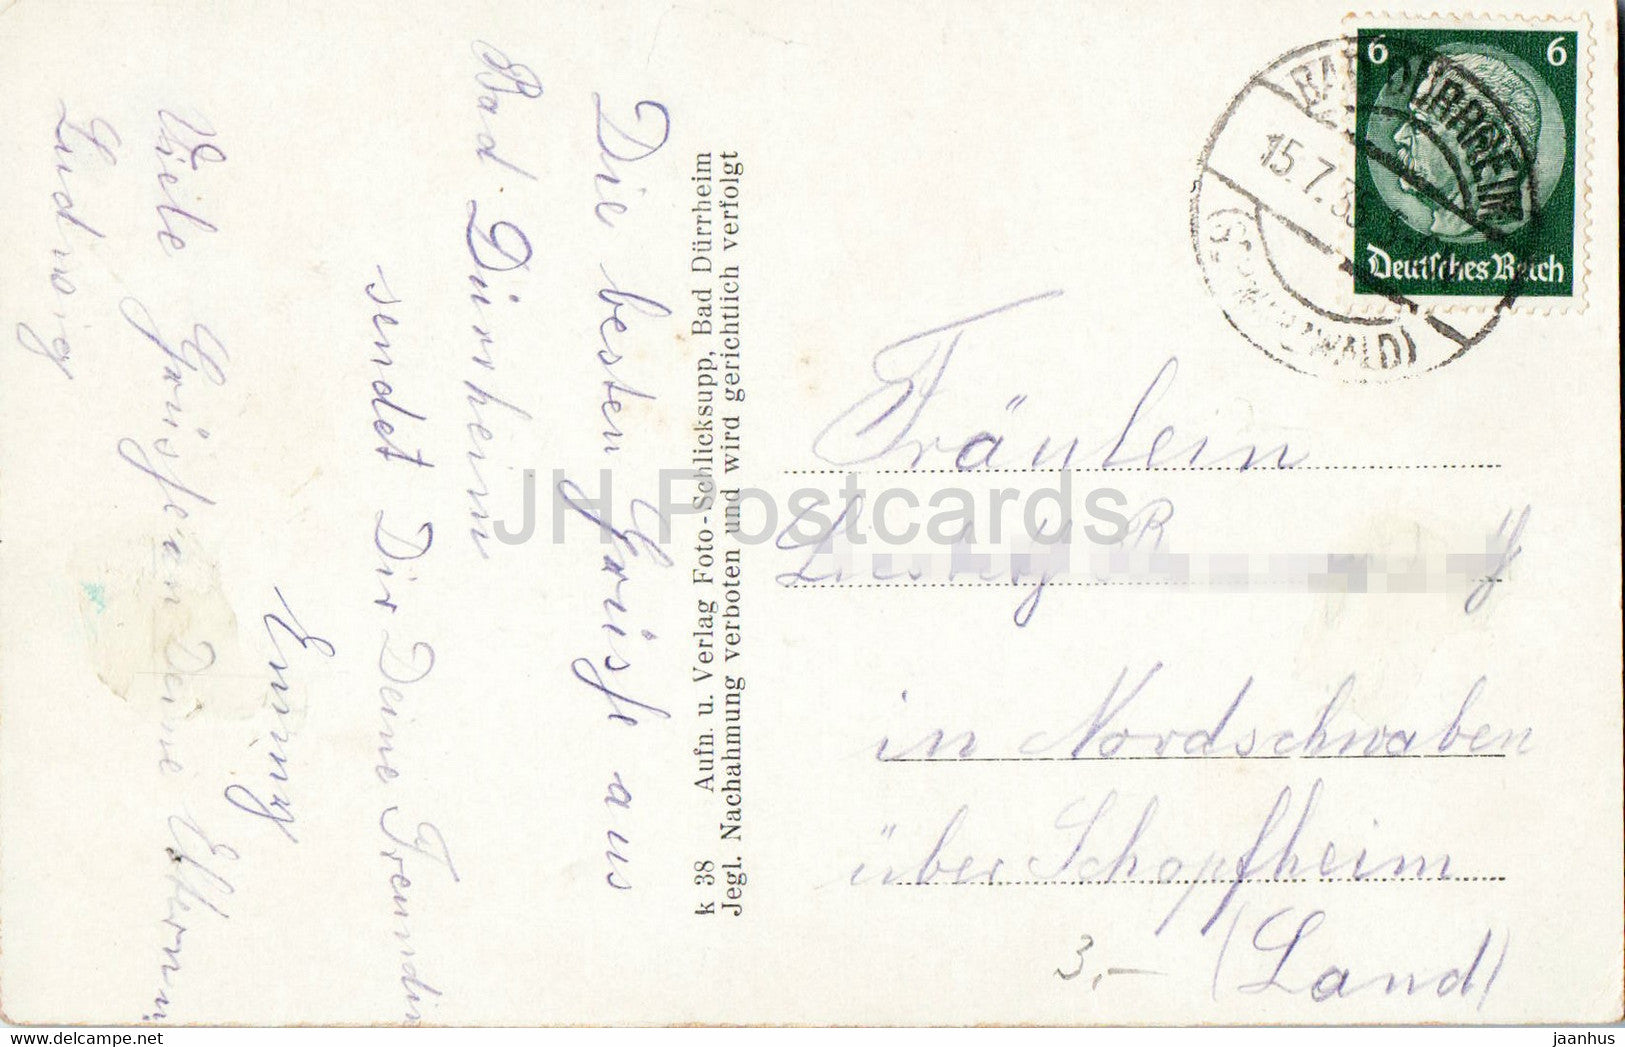 Die besten Grüsse aus
Bad Dürrheim
sendet Dir Deine Freundin
Emmy
Viele Grüsse an Deine Eltern u.
Ludwig
k 38 Aufn. u. Verlag Foto-Schlicksupp, Bad Dürrheim
Jegl. Nachahmung verboten und wird gerichtlich verfolgt
6 6
Deutsches Reich
BAD DÜRRHEIM
15.7.3
(SCHWARZWALD)
Fräulein
in Nordschwaben
über Schopfheim
(Land)
3,-
JH Postcards
jaanhus